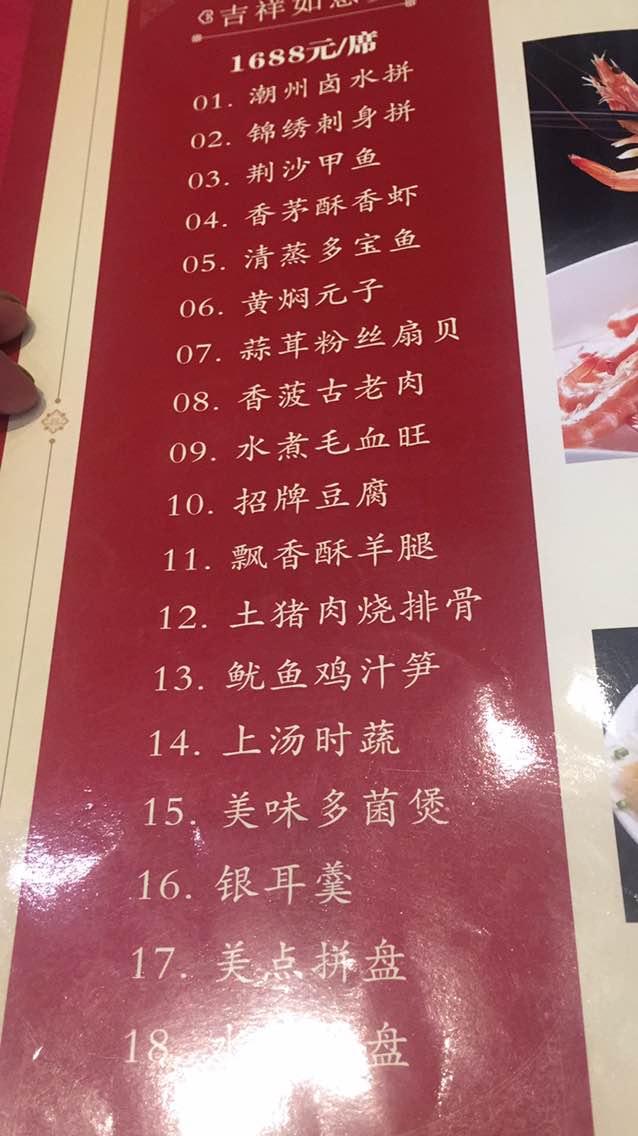 吉祥如意
1688元/席
01. 潮州卤水拼
02. 锦绣刺身拼
03. 荆沙甲鱼
04. 香茅酥香虾
05. 清蒸多宝鱼
06. 黄焖元子
07. 蒜茸粉丝扇贝
08. 香菠古老肉
09. 水煮毛血旺
10. 招牌豆腐
11. 飘香酥羊腿
12. 土猪肉烧排骨
13. 鱿鱼鸡汁笋
14. 上汤时蔬
15. 美味多菌煲
16. 银耳羹
17. 美点拼盘
18. 水 盘